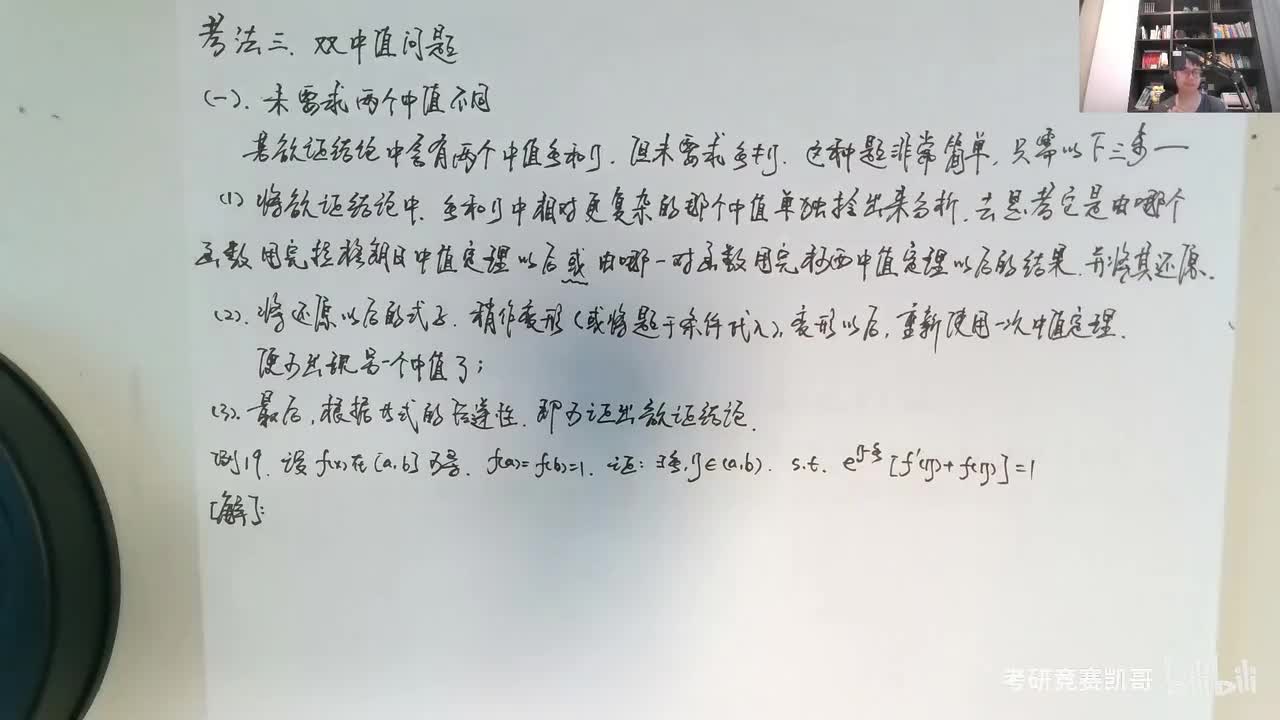 考法三. 双中值问题
(一). 未要求两个中值不同
若欲证结论中含有两个中值ξ和η, 但未要求ξ≠η. 这种题非常简单, 只需以下三步一
(1) 将欲证结论中, ξ和η中相对更复杂的那个中值单独拎出来分析, 去思考它是由哪个
函数用完拉格朗日中值定理以后或由哪一对函数用完柯西中值定理以后的结果, 并将其还原.
(2). 将还原以后的式子, 稍作变形(或将题干条件代入), 变形以后, 重新使用一次中值定理.
便可出现另一个中值了;
(3). 最后, 根据等式的传递性, 即可证出欲证结论.
例19. 设 f(x) 在 [a,b] 可导, f(a)=f(b)=1. 证: ∃ξ,η∈(a,b). s.t. e^{η-ξ}[f'(η)+f(η)]=1
[解]:
考研竞赛凯哥 bilibili